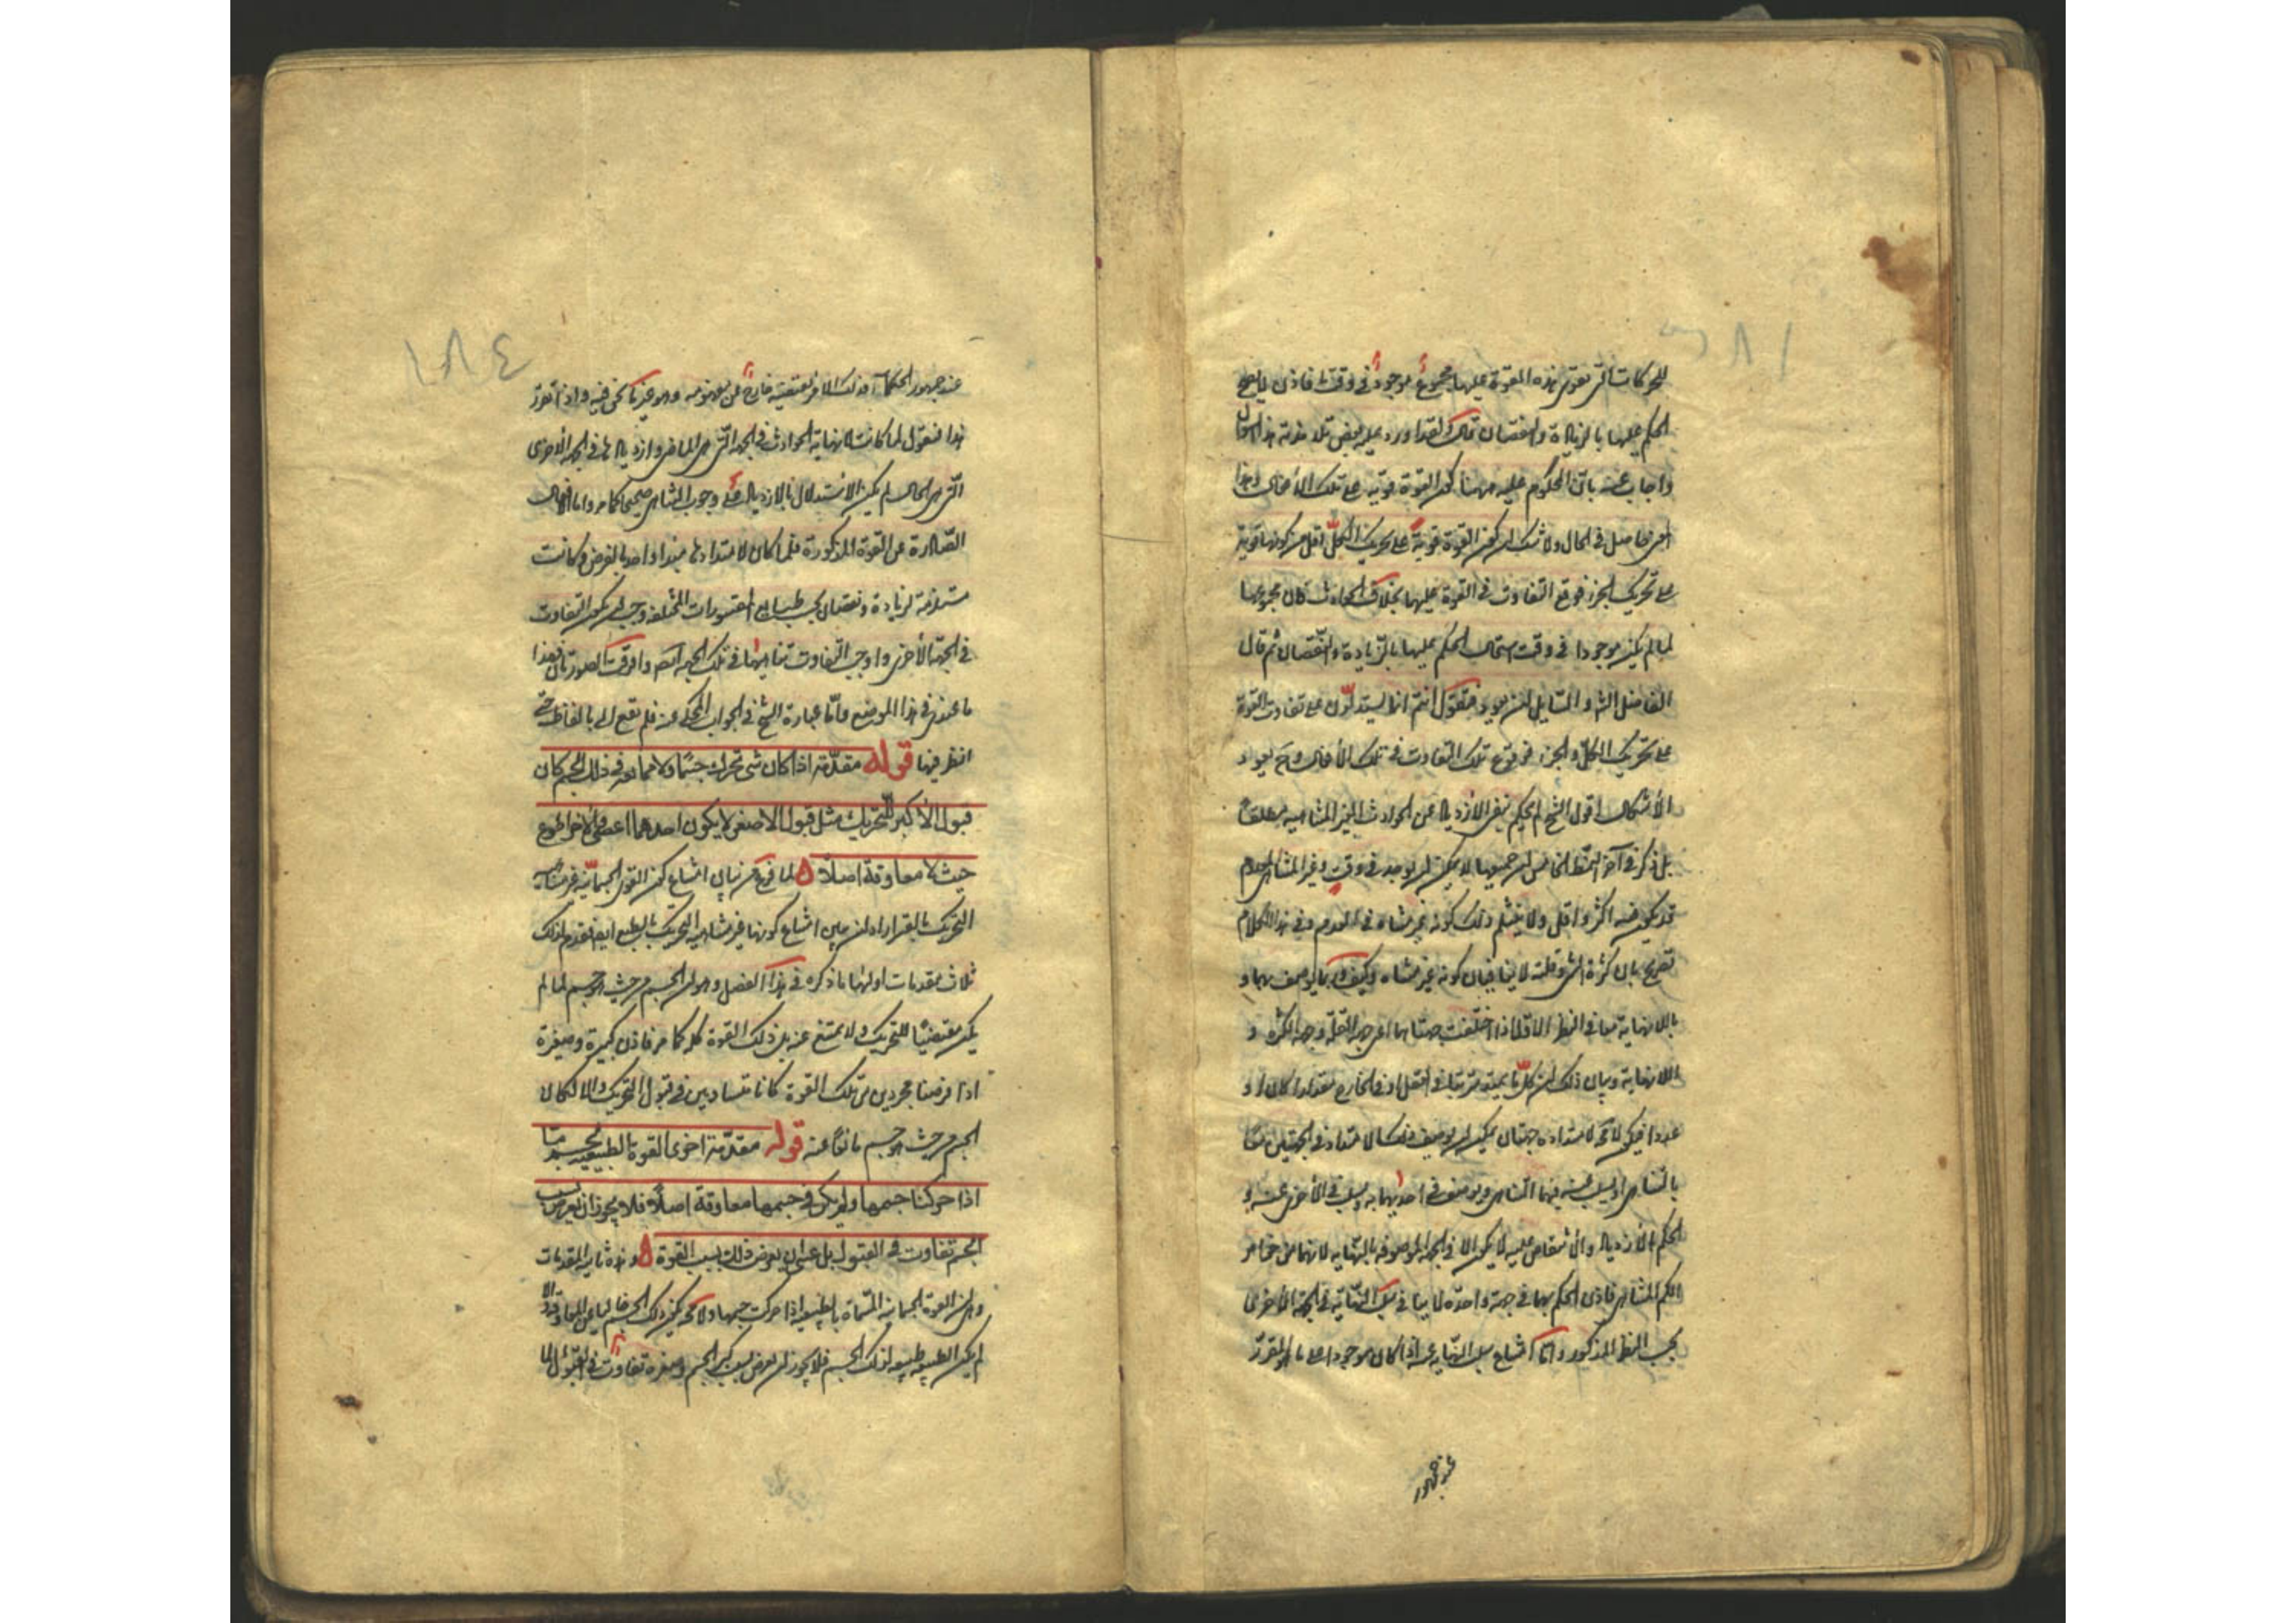 للحركات التى تقوى هذه القوة عليها مجموع موجود فى وقت ما فاذن لا يصح
الحكم عليها بالزيادة والنقصان قال ولقد اورد عليه بعض تلامذته هذا السؤال
واجاب عنه بان المحكوم عليه ههنا كون القوة قوية على تلك الأفعال وهذا
المعنى حاصل فى الحال ولا شك ان كون القوة قوية على تحريك الكل اقل من كونها قوية
على تحريك الجزء فوقع التفاوت فى القوة عليها بخلاف الحوادث فان مجموعها
لما لم يكن موجودا فى وقت استحال الحكم عليها بالزيادة والنقصان ثم قال
الفاضل الشارح والسايل ان يعود فيقول انتم انما تستدلون على تفاوت القوة
على تحريك الكل والجزء فى وقوع تلك التفاوت فى تلك الأفعال وح يعود
الأشكال اقول الشيخ لم يحكم بنفى الازدياد عن الحوادث الغير المتناهية مطلقا
بل ذكر فى آخر النمط الخامس ان جميعها لا يمكن ان يوجد فى وقت وغير المتناهى المعدوم
قد يكون فيه اكثر واقل ولا ينثلم ذلك كونه غير متناه فى العدم وفى هذا الكلام
تصريح بان كثرة الشى وقلته لا ينافيان كونه غير متناه وكيف وربما يوصف بهما و
باللانهاية معا فى النظر الاول اذا اختلفت جهتاهما اعنى جهة القلة وجهة الكثرة و
اللانهاية وبيان ذلك ان كل ما يمتد مترتبا فى العقل او فى الخارج مقدارا كان او
عددا فيكون لا محة لامتداده جهتان يمكن ان يوصف ذلك الامتداد فى الجهتين معا
بالتناهى او يسلب عنه فيهما التناهى ويوصف فى احديهما به ويسلب فى الأخرى عنه و
الحكم بالأزدياد والأنتقاص عليه لا يكون الا فى الجهة الموصوفة بالنهاية لانهما من خواص
الكم المتناهى فاذن الحكم بهما فى جهة واحدة لا ينافى سلب النهاية فى الجهة الأخرى
بحسب النظر المذكور واما امتناع سلب النهاية عنه اذا كان موجودا على ما هو المقرر
عند جمهور
عند جمهور الحكماء فذلك الامر يقتضيه خارج عن مفهومه وهو غير ما نحن فيه واذا تقرر
هذا فنقول لما كانت لا نهاية الحوادث فى الجهة التى هى الماضى وازديادها فى الجهة الأخرى
التى هى الحال لم يكن الاستدلال بالازدياد على وجوب التناهى صحيحا كما مر واما الأفعال
الصادرة عن القوة المذكورة فلما كان لامتدادها مبدأ واحد بالفرض وكانت
مستلزمة لزيادة ونقصان بحسب طبايع المقسورات المختلفة وجب ان يكون التفاوت
فى الجهة الأخرى واوجب التفاوت تناهيها فى تلك الجهة ايضا وافترقت الصورتان فهذا
ما عندى فى هذا الموضع واما عبارة الشيخ فى الجواب المحكى عنه فلم يقع الى بالفاظه حتى
انظر فيها قوله مقدمة اذا كان شى تحرك جسما ولا ممانعة فى ذلك الجسم كان
قبول الأكبر للتحريك مثل قبول الاصغر لا يكون احدهما اعصى والاخر اطوع
حيث لا معاوقة اصلا لما فرغ من بيان امتناع كون القوى الجسمانية غير متناهية
التحريك بالقسر اراد ان يبين امتناع كونها غير متناهية التحريك بالطبع ايضا فقدم لذلك
ثلاث مقدمات اولها ما ذكره فى هذا الفصل وهو ان الجسم من حيث هو جسم لما لم
يكن مقتضيا للتحريك ولا يمتنع عنه بل ذلك القوة كله كما مر فاذن كبيرة وصغيرة
اذا فرضنا مجردين من تلك القوة كانا متساويين فى قبول التحريك والا لكان
الجسم من حيث هو جسم مانعا عنه قوله مقدمة اخرى القوة الطبيعيه لجسم ما
اذا حركت جسمها ولم يكن فى جسمها معاوقة اصلا فلا يجوز ان يعرض بسبب
الجسم تفاوت فى القبول بل عسى ان يعرض ذلك بسبب القوة وهذه ثانية المقدمات
وهى ان القوة الجسمانية المسماة بالطبيعة اذا حركت جسمها ولا محة يكون ذلك الجسم خاليا عن المعاوقة والا
لم يكن الطبيعة طبيعة لذلك الجسم فلا يجوز ان يعرض بسبب كبر الجسم وصغره تفاوت فى القبول لما